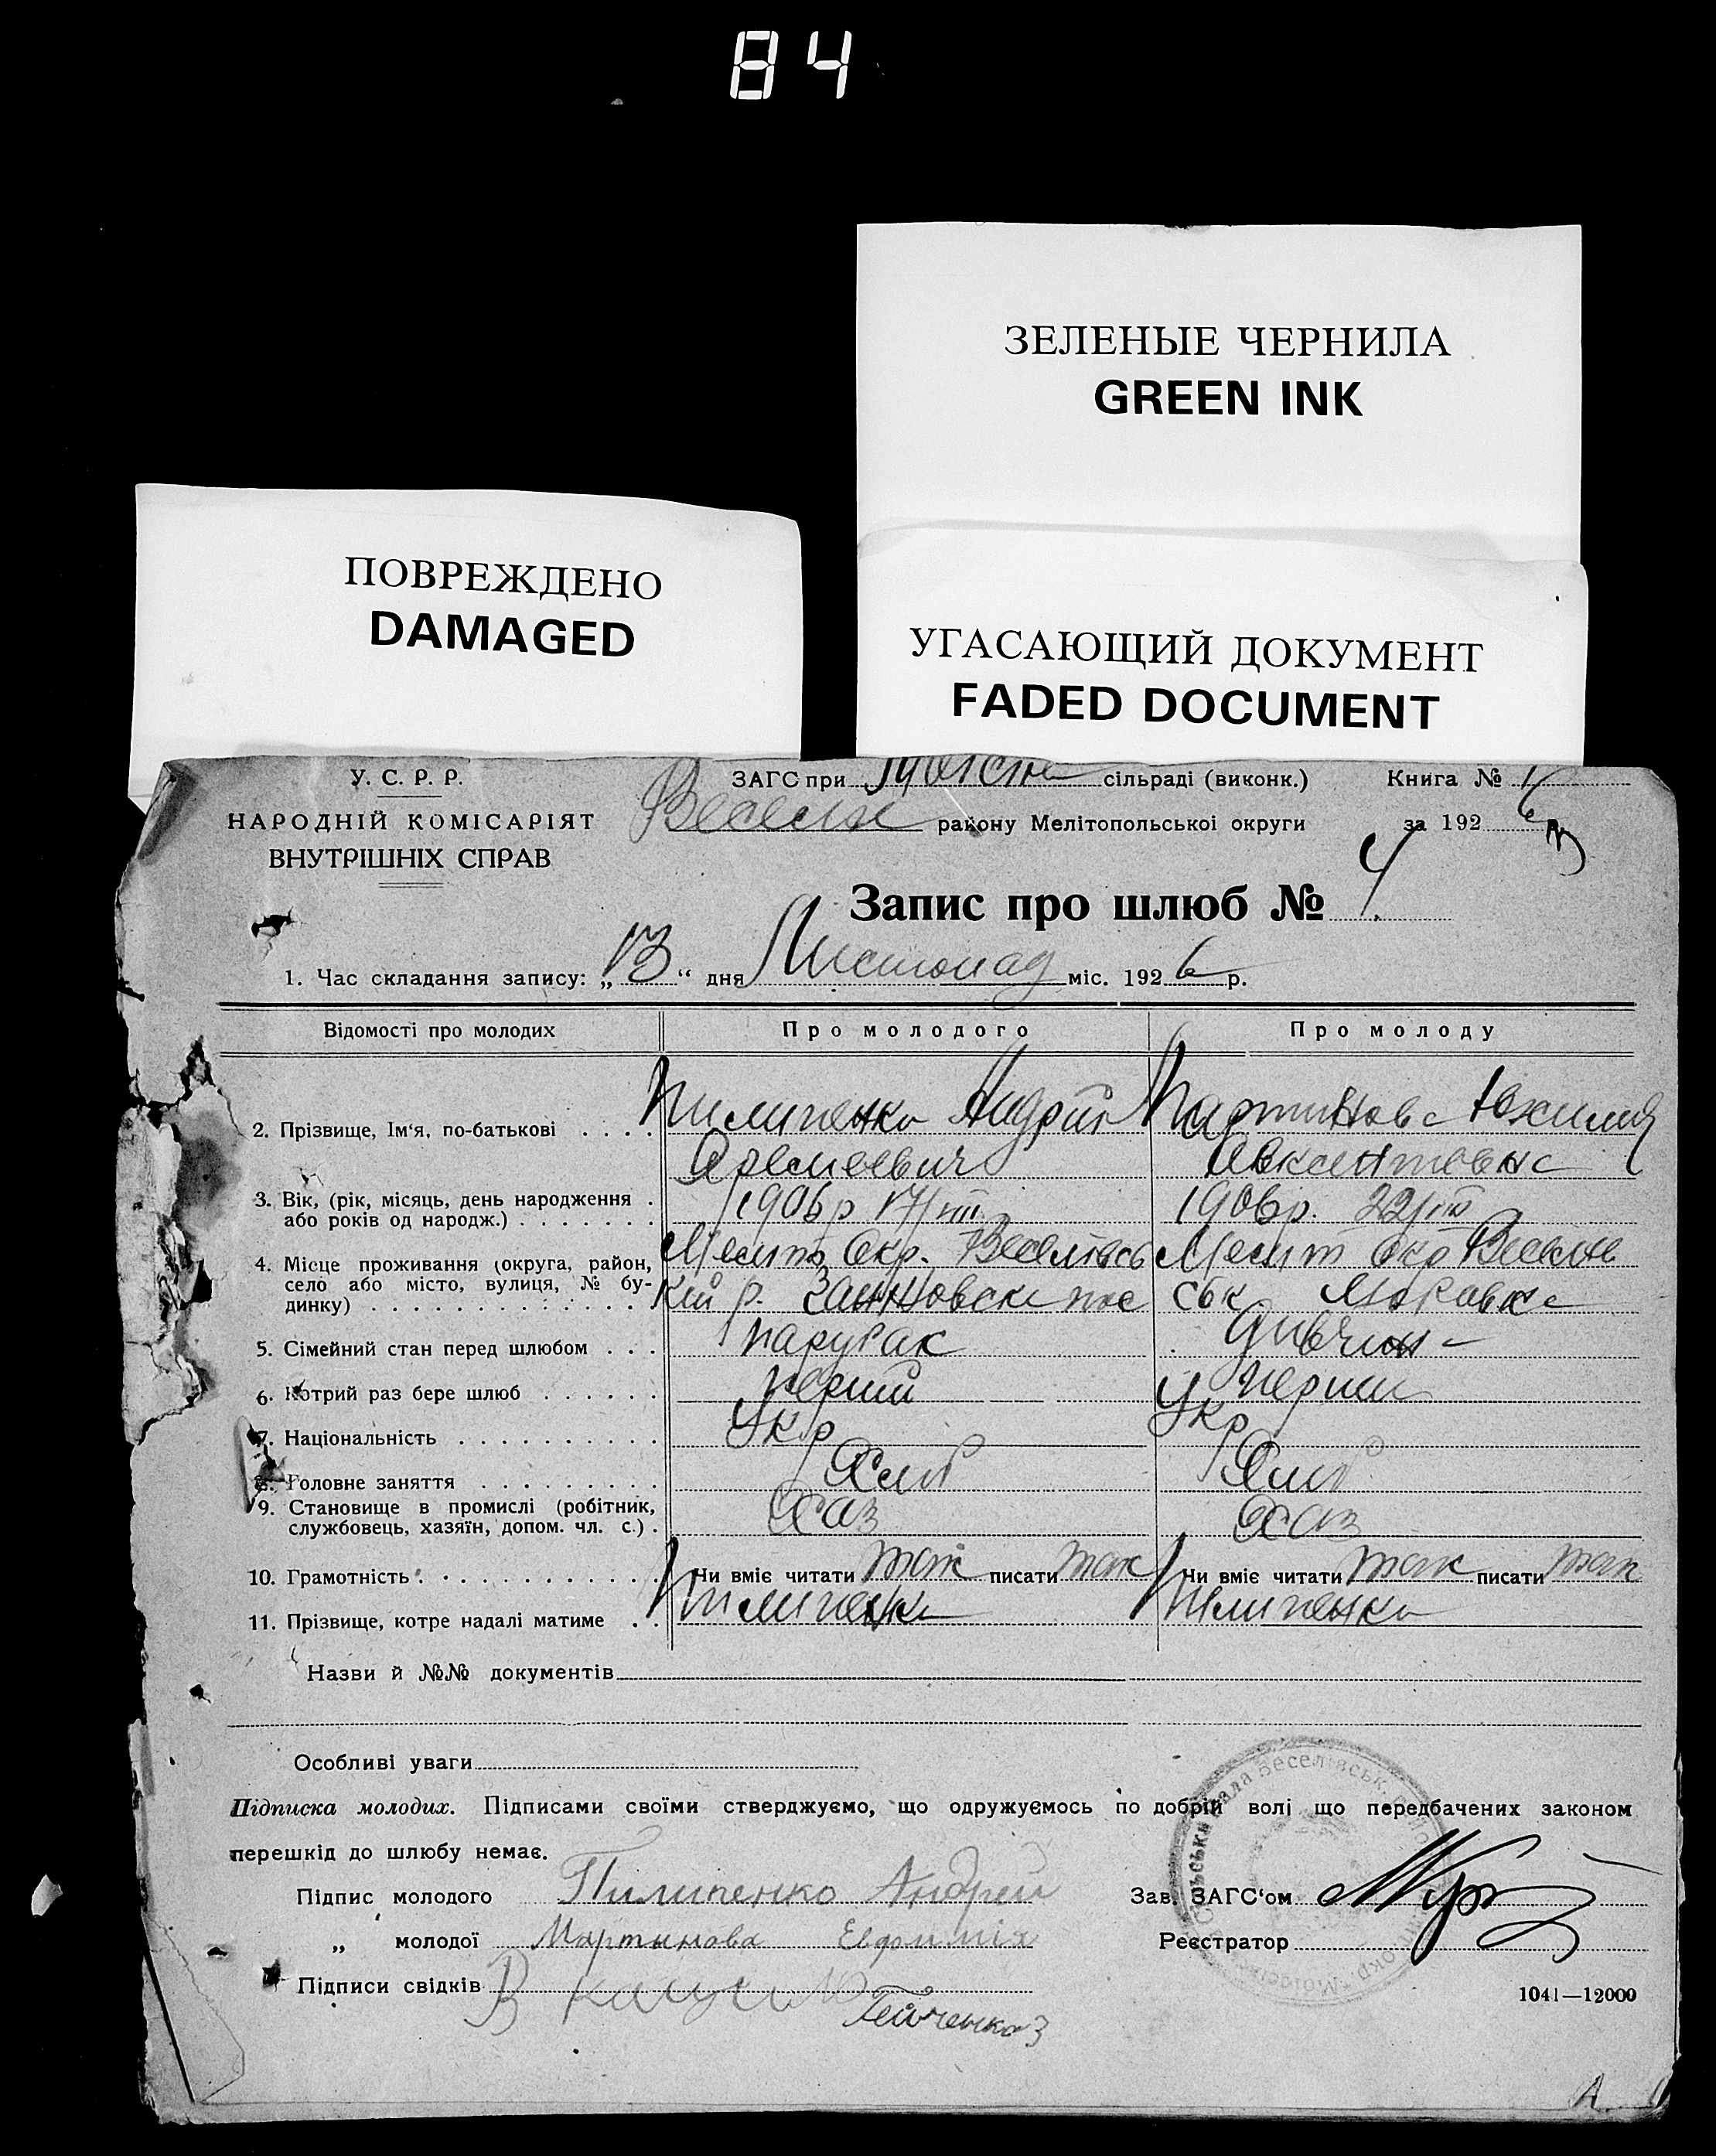 84
ЗЕЛЕНЫЕ ЧЕРНИЛА
GREEN INK
ПОВРЕЖДЕНО
DAMAGED
УГАСАЮЩИЙ ДОКУМЕНТ
FADED DOCUMENT
У. С. Р. Р.
НАРОДНІЙ КОМІСАРІЯТ
ВНУТРІШНІХ СПРАВ
ЗАГС при сільраді (виконк.) Книга №
району Мелітопольської округи за 1926
Запис про шлюб № 4
1. Час складання запису: „13“ дня Листопад міс. 1926 р.
Відомості про молодих Про молодого Про молоду
2. Прізвище, Ім'я, по-батькові . . . . Пилипенко Андрій Мартинова
3. Вік, (рік, місяць, день народження . або років од народж.) . . . . . . . 1906 р 17/III 1906 р. 22/III
4. Місце проживання (округа, район, село або місто, вулиця, № будинку) . . . . . . . . . . . . . Меліт Окр. Веселівсь кий р. Меліт Окр
5. Сімейний стан перед шлюбом . . . парубак дивчина
6. Котрий раз бере шлюб . . . . . . перший перший
7. Національність . . . . . . . . . . Укр Укр
8. Головне заняття . . . . . . . . . Хліб Хліб
9. Становище в промислі (робітник, службовець, хазяїн, допом. чл. с.) . Хаз Хаз
10. Грамотність . . . . . . . . . . . . Чи вміє читати так писати так Чи вміє читати так писати так
11. Прізвище, котре надалі матиме . . Пилипенко Пилипенко
Назви й №№ документів
Особливі уваги
Підписка молодих. Підписами своїми стверджуємо, що одружуємось по добрій волі що передбачених законом
перешкід до шлюбу немає.
Підпис молодого Пилипенко Андрей Зав. ЗАГС'ом
„ молодої Мартынова Евфимія Реєстратор
Підписи свідків
1041—12000